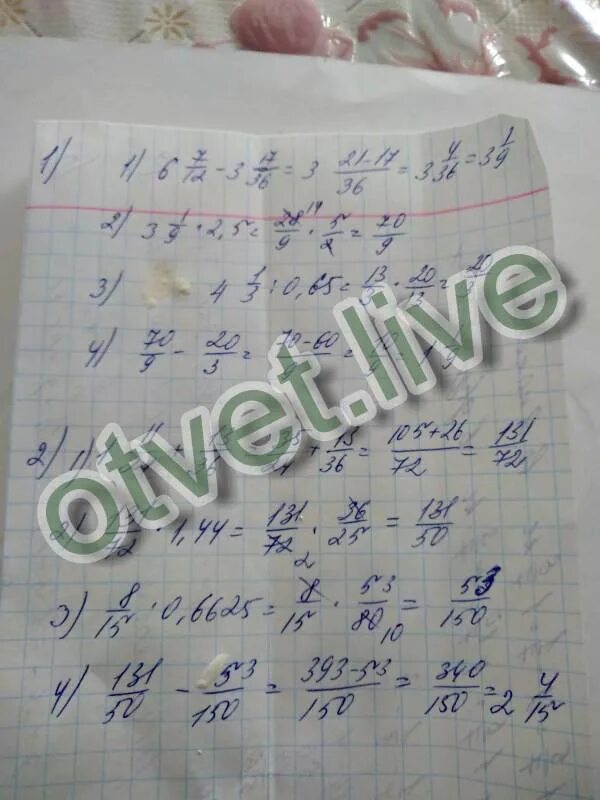 1) 1) 6 7/12 - 3 17/36 = 3 21-17/36 = 3 4/36 = 3 1/9
2) 3 1/9 · 2,5 = 28 14/9 · 5/2 = 70/9
3) 4 1/3 : 0,65 = 13/3 · 20/13 = 20/3
4) 70/9 - 20/3 = 70-60/9 = 10/9 = 1 1/9
2) 1) + 13/36 = + 13/36 = 105+26/72 = 131/72
2) 131/72 · 1,44 = 131/72 2 · 36/25 = 131/50
3) 8/15 · 0,6625 = 8/15 · 53/80 10 = 53/150
4) 131/50 - 53/150 = 393-53/150 = 340/150 = 2 4/15
otvet.live